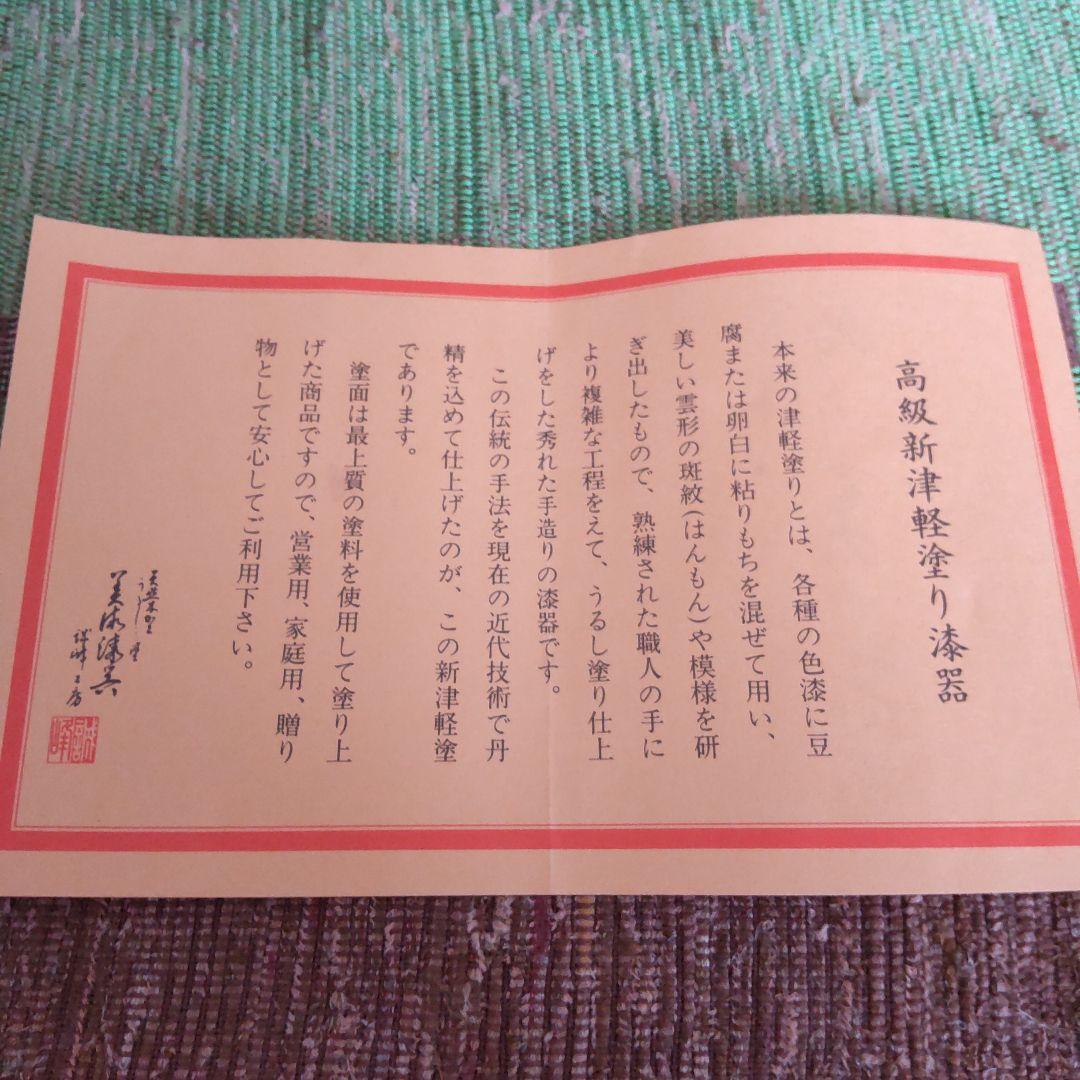 高級新津軽塗り漆器
本来の津軽塗りとは、各種の色漆に豆
腐または卵白に粘りもちを混ぜて用い、
美しい雲形の斑紋(はんもん)や模様を研
ぎ出したもので、熟練された職人の手に
より複雑な工程をえて、うるし塗り仕上
げをした秀れた手造りの漆器です。
この伝統の手法を現在の近代技術で丹
精を込めて仕上げたのが、この新津軽塗
であります。
塗面は最上質の塗料を使用して塗り上
げた商品ですので、営業用、家庭用、贈り
物として安心してご利用下さい。